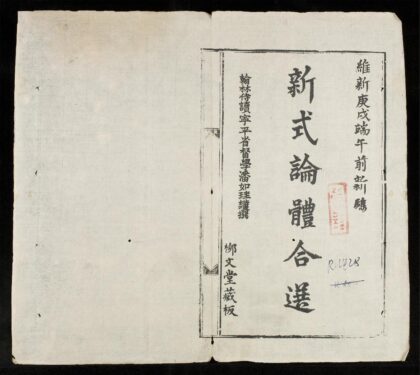 維新庚戌端午前新鐫
新式論體合選
翰林侍讀寧平省督學潘如珪撰
柳文堂藏板